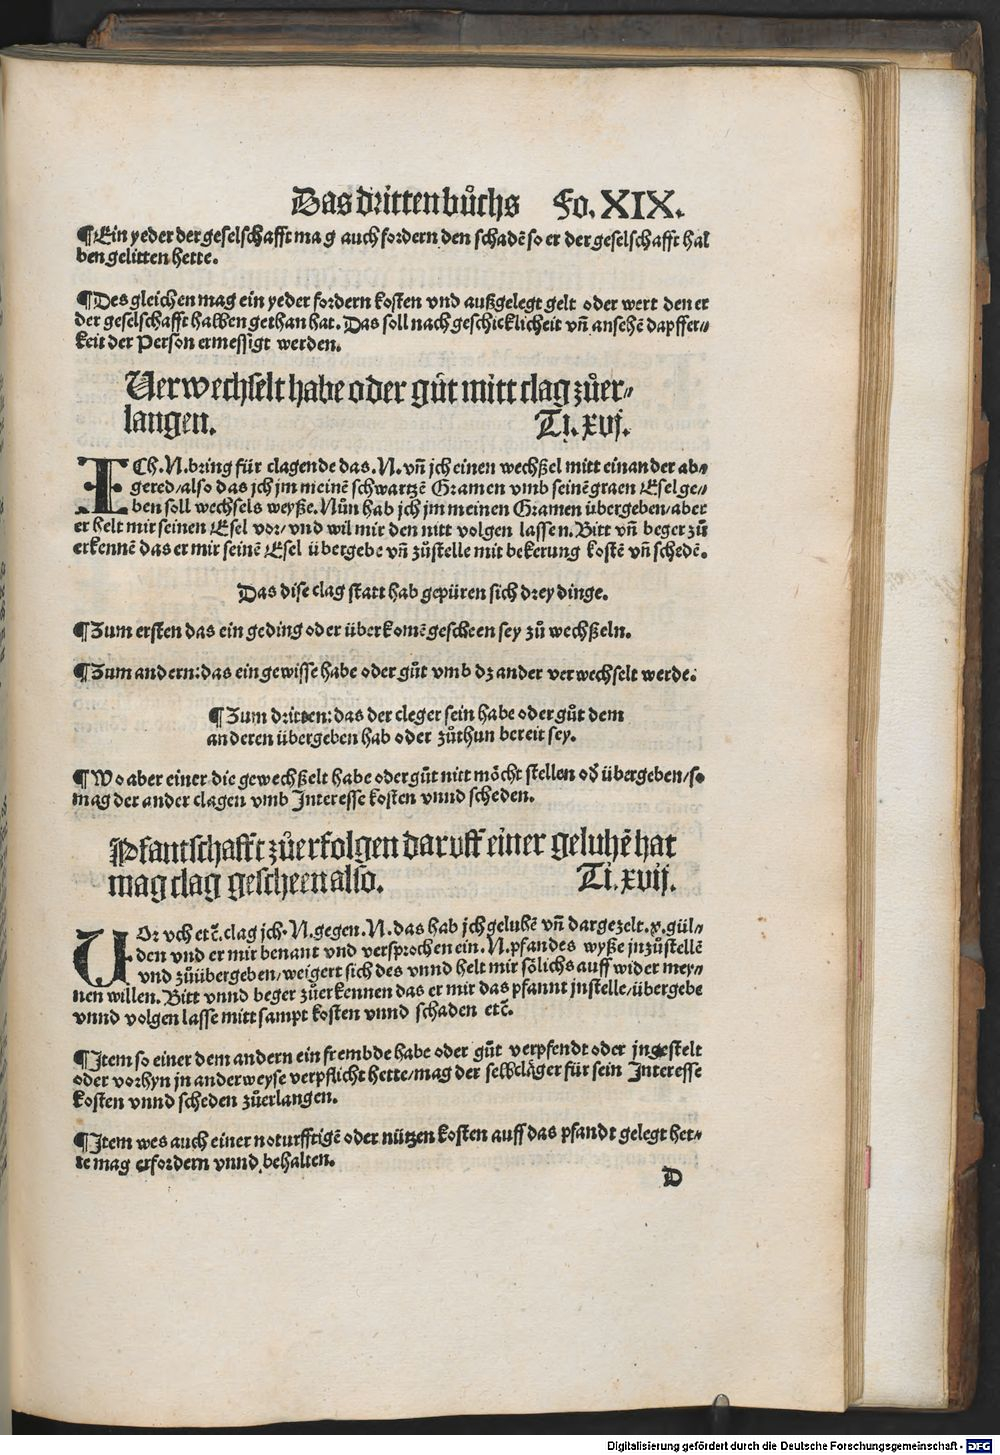 Das dritten bůchs Fo. XIX.
¶Ein yeder der geselschafft mag auch fordern den schadē so er der geselschafft hal
ben gelitten hette.
¶Des gleichen mag ein yeder fordern kosten vnd außgelegt gelt oder wert den er
der geselschafft halben gethan hat. Das soll nach geschicklicheit vn̄ ansehē dapffer⸗
keit der Person ermessigt werden.
Verwechselt habe oder gůt mitt clag zůer⸗
langen. Ti. xvj.
ICh. N. bring für clagende das. N. vn̄ jch einen wechßel mitt einander ab⸗
gered/also das jch jm meinē schwartzē Gramen vmb seinē graen Esel ge⸗
ben soll wechsels weyße. Nůn hab jch jm meinen Gramen übergeben/aber
er helt mir seinen Esel vor/vnd wil mir den nitt volgen lassen. Bitt vn̄ beger zů
erkennē das er mir seinē Esel übergebe vn̄ zůstelle mit bekerung kostē vn̄ schedē.
Das dise clag statt hab gepüren sich drey dinge.
¶Zum ersten das ein geding oder überkomē gescheen sey zů wechßeln.
¶Zum andern: das ein gewisse habe oder gůt vmb dz ander verwechselt werde.
¶Zum dritten: das der cleger sein habe oder gůt dem
anderen übergeben hab oder zůthun bereit sey.
¶Wo aber einer die gewechßelt habe oder gůt nitt möcht stellen od̄ übergeben/so
mag der ander clagen vmb Interesse kosten vnnd scheden.
Pfantschafft zůerfolgen daruff einer geluhē hat
mag clag gescheen also. Ti. xvij.
VOr vch etc̄. clag jch. N. gegen. N. das hab jch geluhē vn̄ dargezelt. x. gül⸗
den vnd er mir benant vnd versprochen ein. N. pfandes wyße jnzůstellē
vnd zůübergeben/weigert sich des vnnd helt mir sölichs auff wider mey⸗
nen willen. Bitt vnnd beger zůerkennen das er mir das pfannt jnstelle/übergebe
vnnd volgen lasse mitt sampt kosten vnnd schaden etc̄.
¶Item so einer dem andern ein frembde habe oder gůt verpfendt oder jngestelt
oder vorhyn jn ander weyse verpflicht hette/mag der selb cläger für sein Interesse
kosten vnnd scheden zůerlangen.
¶Item wes auch einer noturfftigē oder nützen kosten auff das pfandt gelegt het⸗
te mag erfordern vnnd behalten.
D
Digitalisierung gefördert durch die Deutsche Forschungsgemeinschaft - DFG